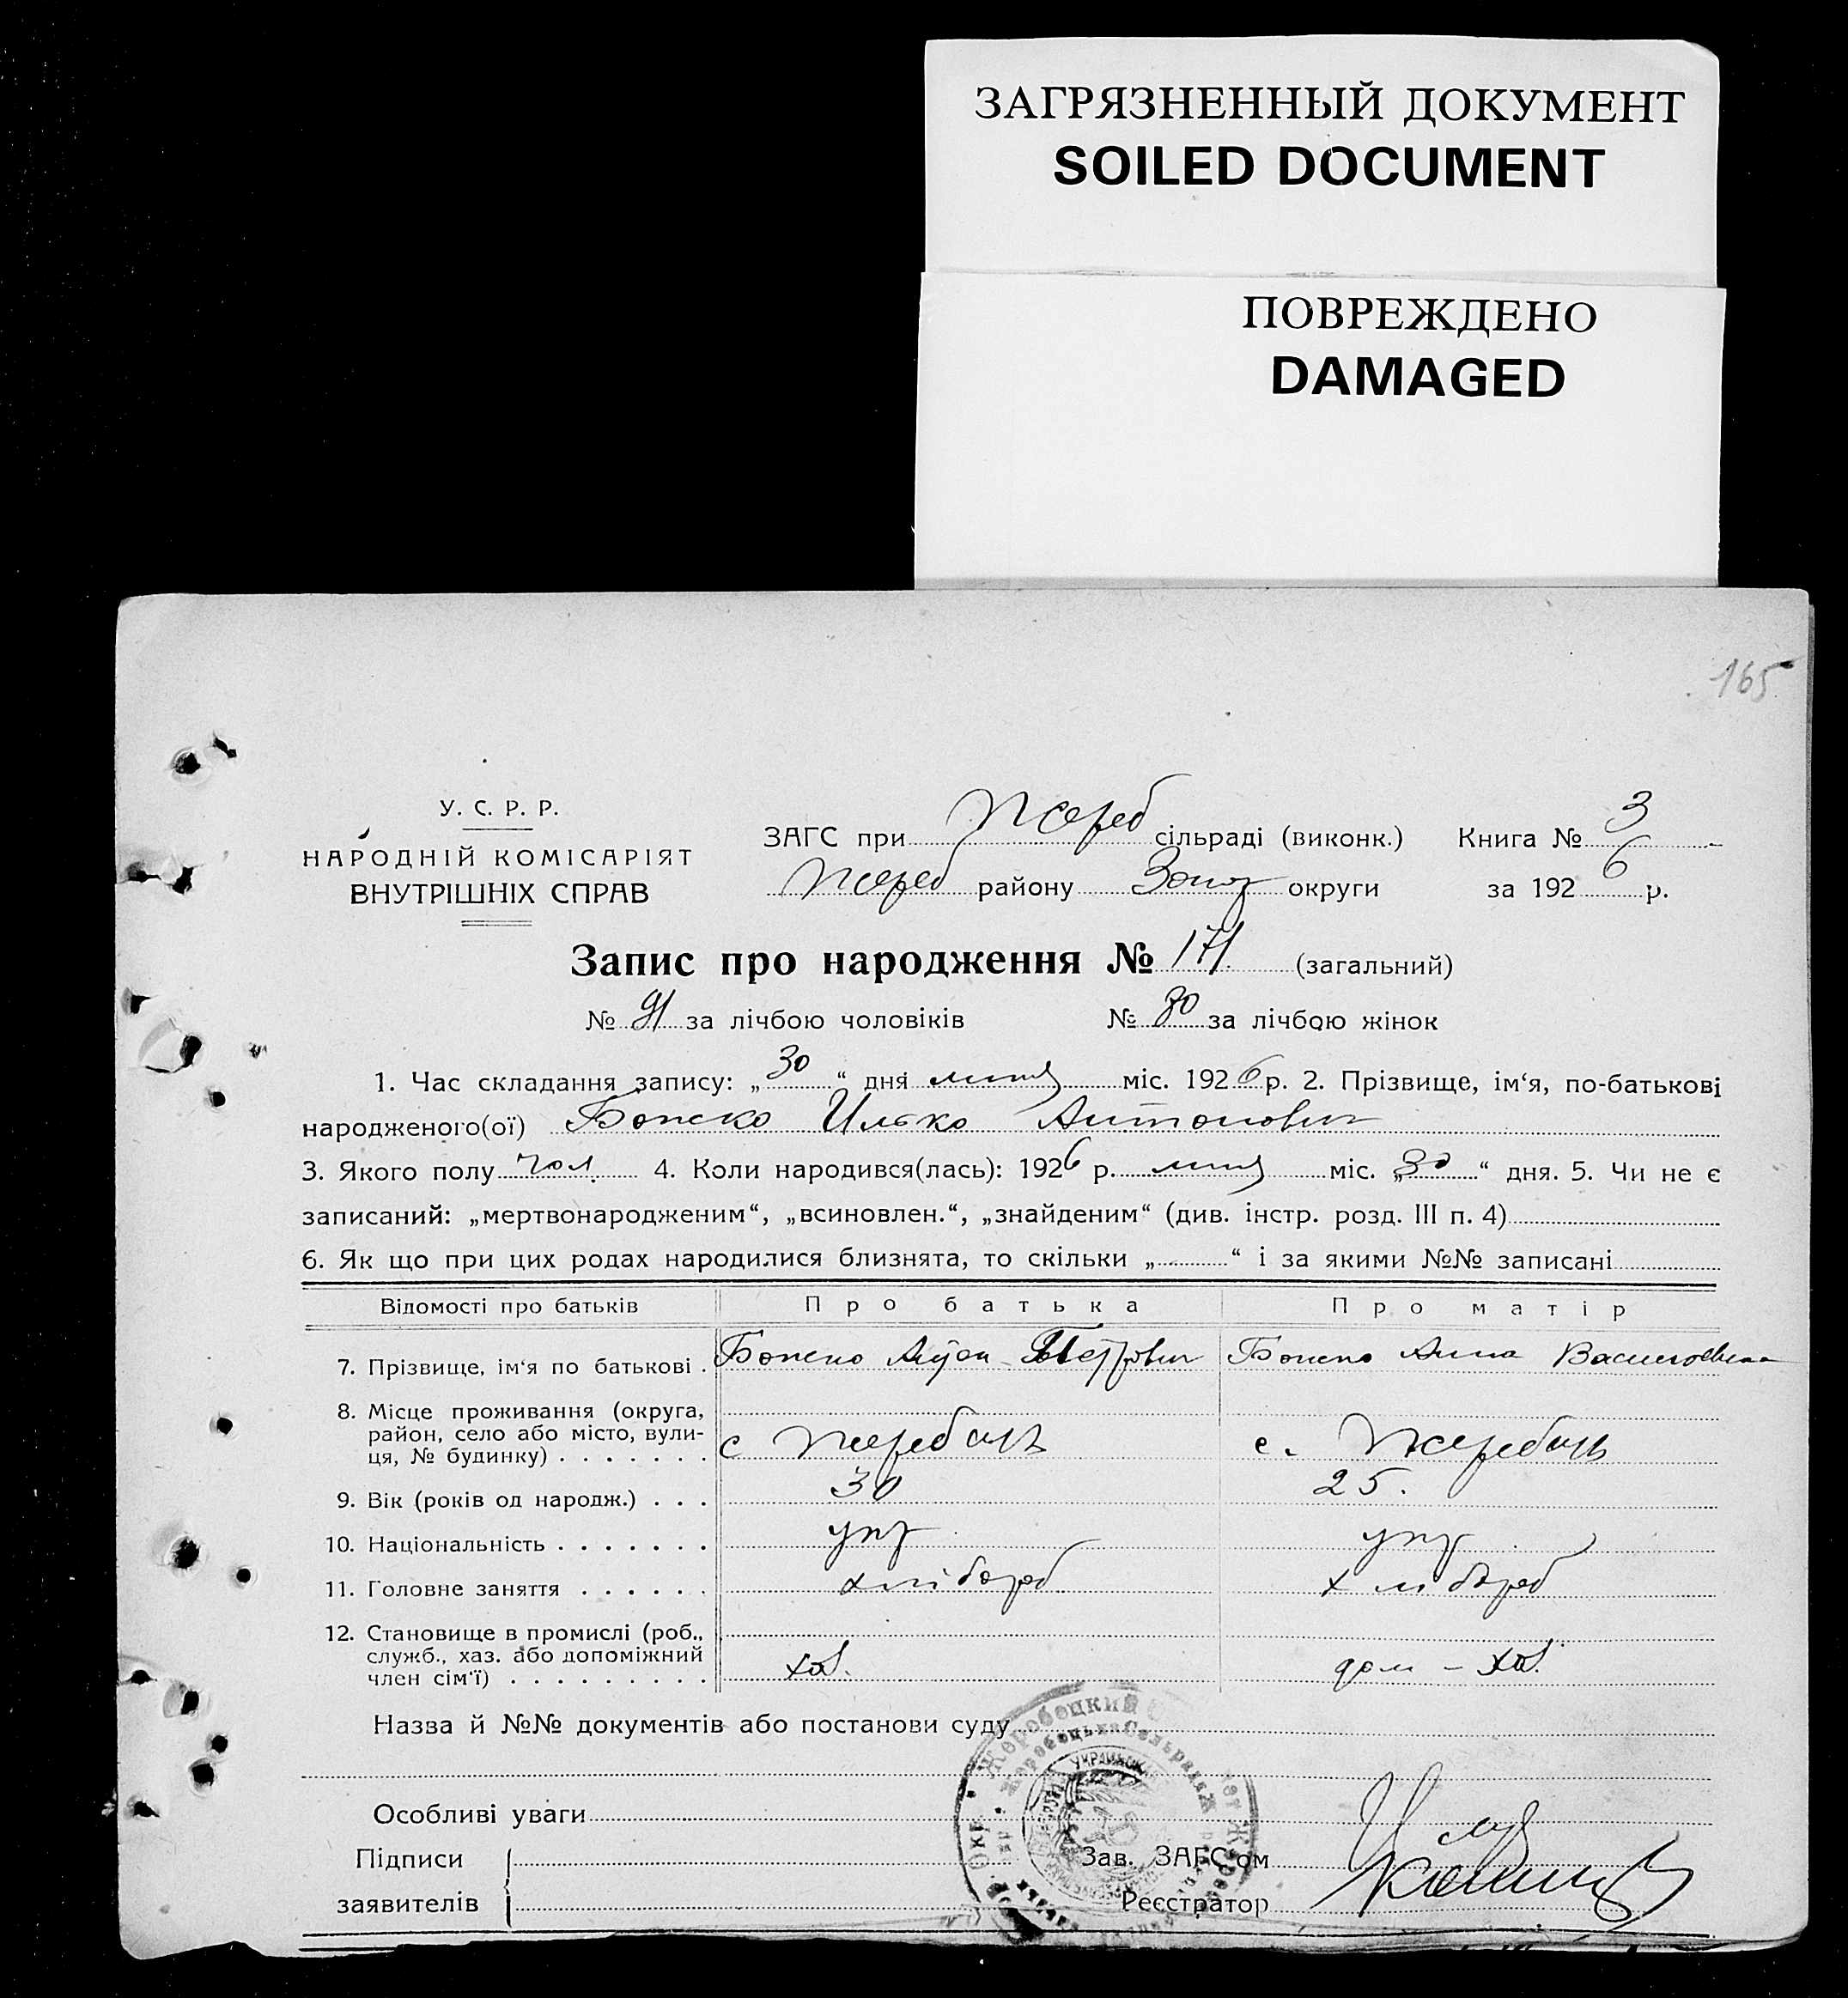 ЗАГРЯЗНЕННЫЙ ДОКУМЕНТ
SOILED DOCUMENT
ПОВРЕЖДЕНО
DAMAGED
165
У. С. Р. Р.
НАРОДНІЙ КОМІСАРІЯТ
ВНУТРІШНІХ СПРАВ
ЗАГС при Жереб сільраді (виконк.) Книга № 3
Жереб району Запоз округи за 1926 р.
Запис про народження № 171 (загальний)
№ 91 за лічбою чоловіків № 80 за лічбою жінок
1. Час складання запису: „30“ дня липня міс. 1926 р. 2. Прізвище, ім‘я, по-батькові
народженого(ої) Божско Илько Антонович
3. Якого полу чол. 4. Коли народився(лась): 1926 р. липня міс. „30“ дня. 5. Чи не є
записаний: „мертвонародженим“, „всиновлен.“, „знайденим“ (див. інстр. розд. III п. 4)
6. Як що при цих родах народилися близнята, то скільки „ “ і за якими №№ записані
Відомості про батьків Про батька Про матір
7. Прізвище, ім‘я по батькові . Петрович Анна Василовна
8. Місце проживання (округа,
район, село або місто, вули-
ця, № будинку) . . . . . . . с Жеребець с. Жеребець
9. Вік (років од народж.) . . . 30 25.
10. Національність . . . . . . . укр укр
11. Головне заняття . . . . . . хлібороб хлібороб
12. Становище в промислі (роб.,
служб., хаз. або допоміжний
член сім‘ї) . . . . . . . . . хаз. дом – хаз.
Назва й №№ документів або постанови суду
Особливі уваги
Підписи
заявителів
Зав. ЗАГС‘ом
Реєстратор